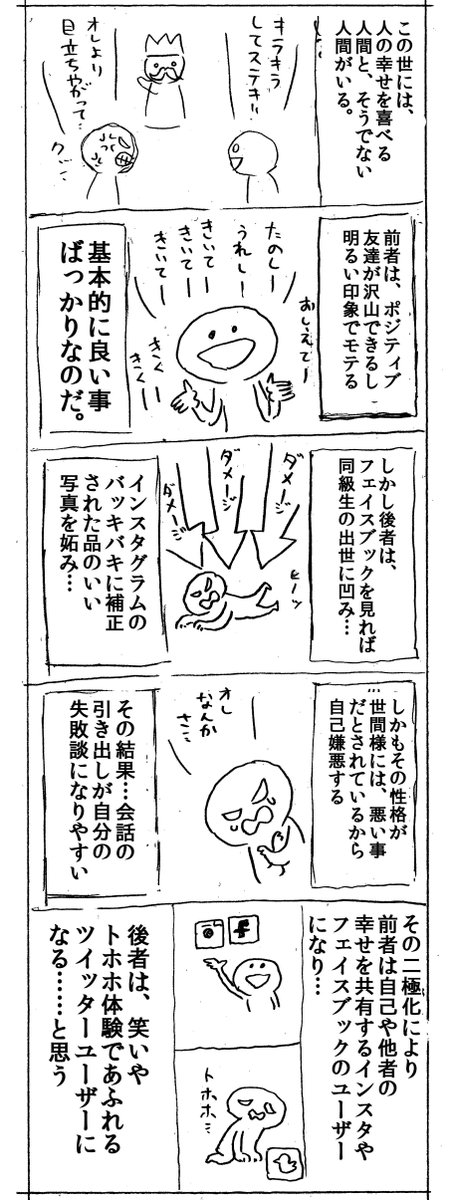 この世には、
人の幸せを喜べる
人間と、そうでない
人間がいる。
キラキラ
してステキ!!
オレより
目立ちやがって…
グ…
前者は、ポジティブ
友達が沢山できるし
明るい印象でモテる
おしえてー
たのしー
うれしー
きいてー
きいてー
きいてー
きくー
きくー
基本的に良い事
ばっかりなのだ。
しかし後者は、
フェイスブックを見れば
同級生の出世に凹み…
ダメージ
ダメージ
ダメージ
ヒーッ
インスタグラムの
バッキバキに補正
された品のいい
写真を妬み…
しかもその性格が
…
世間様には、悪い事
だとされているから
自己嫌悪する
オレ
なんか
さ…
その結果…会話の
引き出しが自分の
失敗談になりやすい
その二極化により
前者は自己や他者の
幸せを共有するインスタや
フェイスブックのユーザー
になり…
f
トホホ…
後者は、笑いや
トホホ体験であふれる
ツイッターユーザーに
なる……と思う